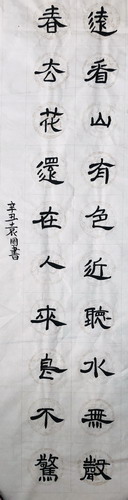 遠看山有色近聽水無聲
春去花還在人來鳥不驚
辛丑袁国書